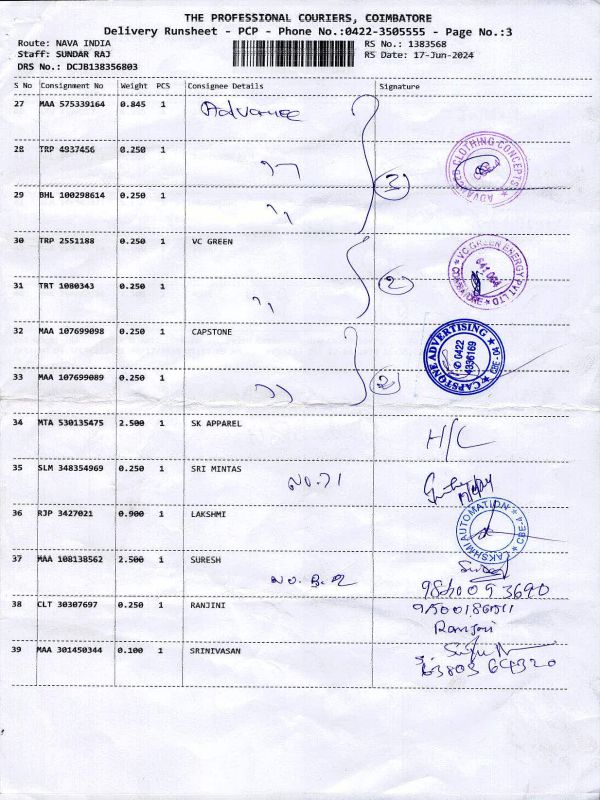 THE PROFESSIONAL COURIERS, COIMBATORE
Delivery Runsheet - PCP - Phone No.:0422-3505555 - Page No.:3
Route: NAVA INDIA RS No.: 1383568
Staff: SUNDAR RAJ RS Date: 17-Jun-2024
DRS No.: DCJB138356803
S No Consignment No Weight PCS Consignee Details Signature
27 MAA 575339164 0.845 1 Advance
28 TRP 4937456 0.250 1 ,, ADVANCED CLOTHING CONCEPTS
3
29 BHL 100298614 0.250 1 ,,
30 TRP 2551188 0.250 1 VC GREEN VC GREEN ENERGY PVT LTD COIMBATORE 641 004
2
31 TRT 1080343 0.250 1 ,,
32 MAA 107699098 0.250 1 CAPSTONE CAPSTONE ADVERTISING CBE-04 0422 4336169
2
33 MAA 107699089 0.250 1 ,,
34 MTA 530135475 2.500 1 SK APPAREL H/C
35 SLM 348354969 0.250 1 SRI MINTAS No. 71
36 RJP 3427021 0.900 1 LAKSHMI LAKSHMI AUTOMATION CBE-4
37 MAA 108138562 2.500 1 SURESH No. B-2
38 CLT 30307697 0.250 1 RANJINI
Ranjini
39 MAA 301450344 0.100 1 SRINIVASAN